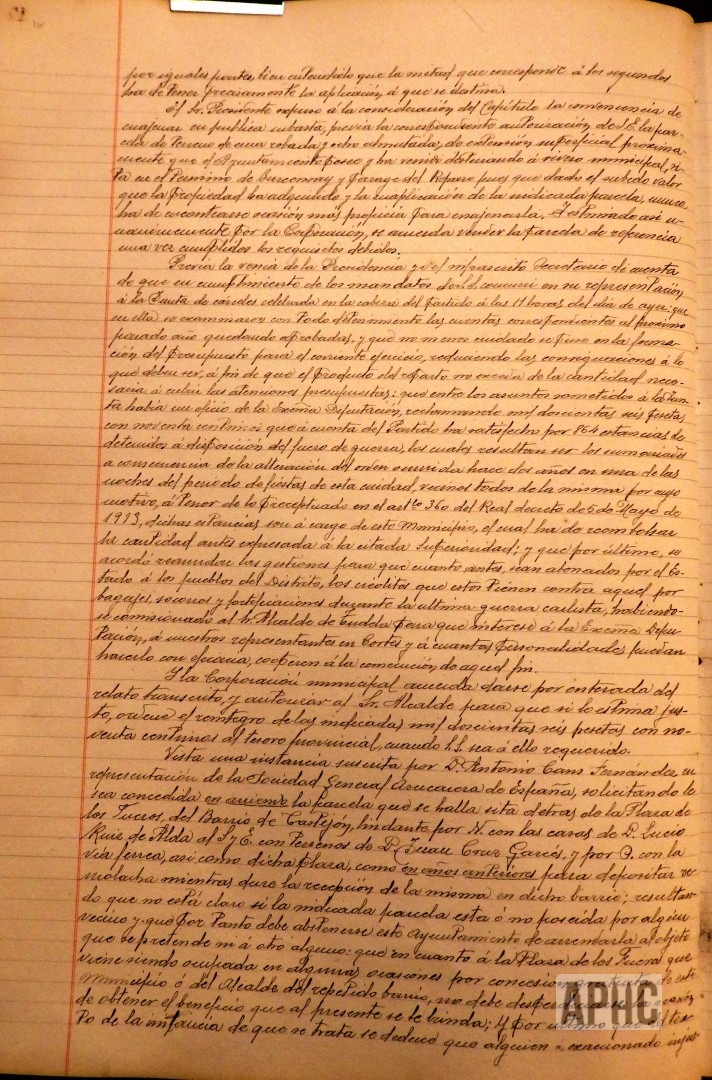 por iguales partes, bien entendido que la mitad que corresponde á los segundos
ha de tener precisamente la aplicación, á que se destina.
El Sr. Presidente expuso á la consideración del Capítulo la conveniencia de
enajenar en pública subasta, previa la correspondiente autorización de S.E. la par-
cela de terreno de una robada y ocho almutadas, de extensión superficial proxima-
mente que el Ayuntamiento posee y ha venido destinando á vivero municipal, si-
ta en el término de y Paraje del pues que dado el subido valor
que la propiedad ha adquirido y la aplicación de la indicada parcela, nunca
ha de encontrarse ocasión más propicia para enajenarla. Y estimado así u-
nanimemente por la Corporación, se acuerda vender la parcela de referencia
una vez cumplidos los requisitos debidos.
Previa la venia de la Presidencia yo el infrascrito Secretario dí cuenta
de que en cumplimiento de los mandatos de concurrí en su representación
á la Junta de cárceles celebrada en la cabeza del Partido á las 11 horas del día de ayer: que
en ella se examinaron con todo detenimiento las cuentas correspondientes al próximo
pasado año quedando aprobadas, y que no menos cuidado se puso en la forma-
ción del Presupuesto para el corriente ejercicio, reduciendo las consignaciones á lo
que deben ser, á fin de que el producto del reparto no exceda de la cantidad nece-
saria á cubrir las atenciones presupuestas; que entre los asuntos sometidos á la Jun-
ta había un oficio de la Excma Diputación, reclamando mil doscientas seis pesetas
con noventa centimos que á cuenta del Partido ha satisfecho por 864 estancias de
detenidos á disposición del fuero de guerra, los cuales resultan ser los sumariados
a consecuencia de la alteración del orden ocurrida hace dos años en una de las
noches del periodo de fiestas de esta ciudad, vecinos todos de la misma por cuyo
motivo, á tenor de lo preceptuado en el artº 36º del Real decreto de 5 de Mayo de
1913, dichas estancias son á cargo de este Municipio, el cual ha de reembolsar
la cantidad antes expresada á la citada Superioridad; y que por último, se
acordó reanudar las gestiones para que cuanto antes, sean abonados por el Es-
tado á los pueblos del Distrito, los créditos que estos tienen contra aquel por
bagajes, socorros y fortificaciones durante la ultima guerra carlista, habiendo-
se comisionado al Sr. Alcalde de Tudela para que interese á la Excma Dipu-
tación, á nuestros representantes en Cortes y á cuantas personalidades puedan
hacerlo con eficacia, cooperen á la consecución de aquel fin.
Y la Corporación municipal acuerda darse por enterada del
relato transcrito, y autorizar al Sr. Alcalde para que si lo estima jus-
to, ordene el reintegro de las indicadas mil doscientas seis pesetas con no-
venta centimos al tesoro provincial, cuando S.S. sea á ello requerido.
Vista una instancia suscrita por D. Antonio Cans Fernández en
representación de la Sociedad General Azucarera de España, solicitando le
sea concedida en arriendo la parcela que se halla sita detras de la Plaza de
los Fueros, del Barrio de Castejón, lindante por N. con las casas de D. Lucio
Ruiz de Alda al S y E. con terrenos de D. Juan Cruz Garcés, y por O. con la
vía ferrea, así como dicha plaza, como en años anteriores para depositar re-
molacha mientras dure la recepción de la misma en dicho barrio; resultan-
do que no está claro si la indicada parcela esta ó no poseida por algún
vecino y que por tanto debe abstenerse este Ayuntamiento de arrendarla al objeto
que se pretende ni á otro alguno: que en cuanto á la Plaza de los Fueros que
viene siendo ocupada en algunas ocasiones por concesión de este
Municipio ó del Alcalde del repetido barrio, no debe la ocasión
de obtener el beneficio que al presente se le brinda; y por que del tex-
to de la instancia de que se trata se deduce que alguien
APHC